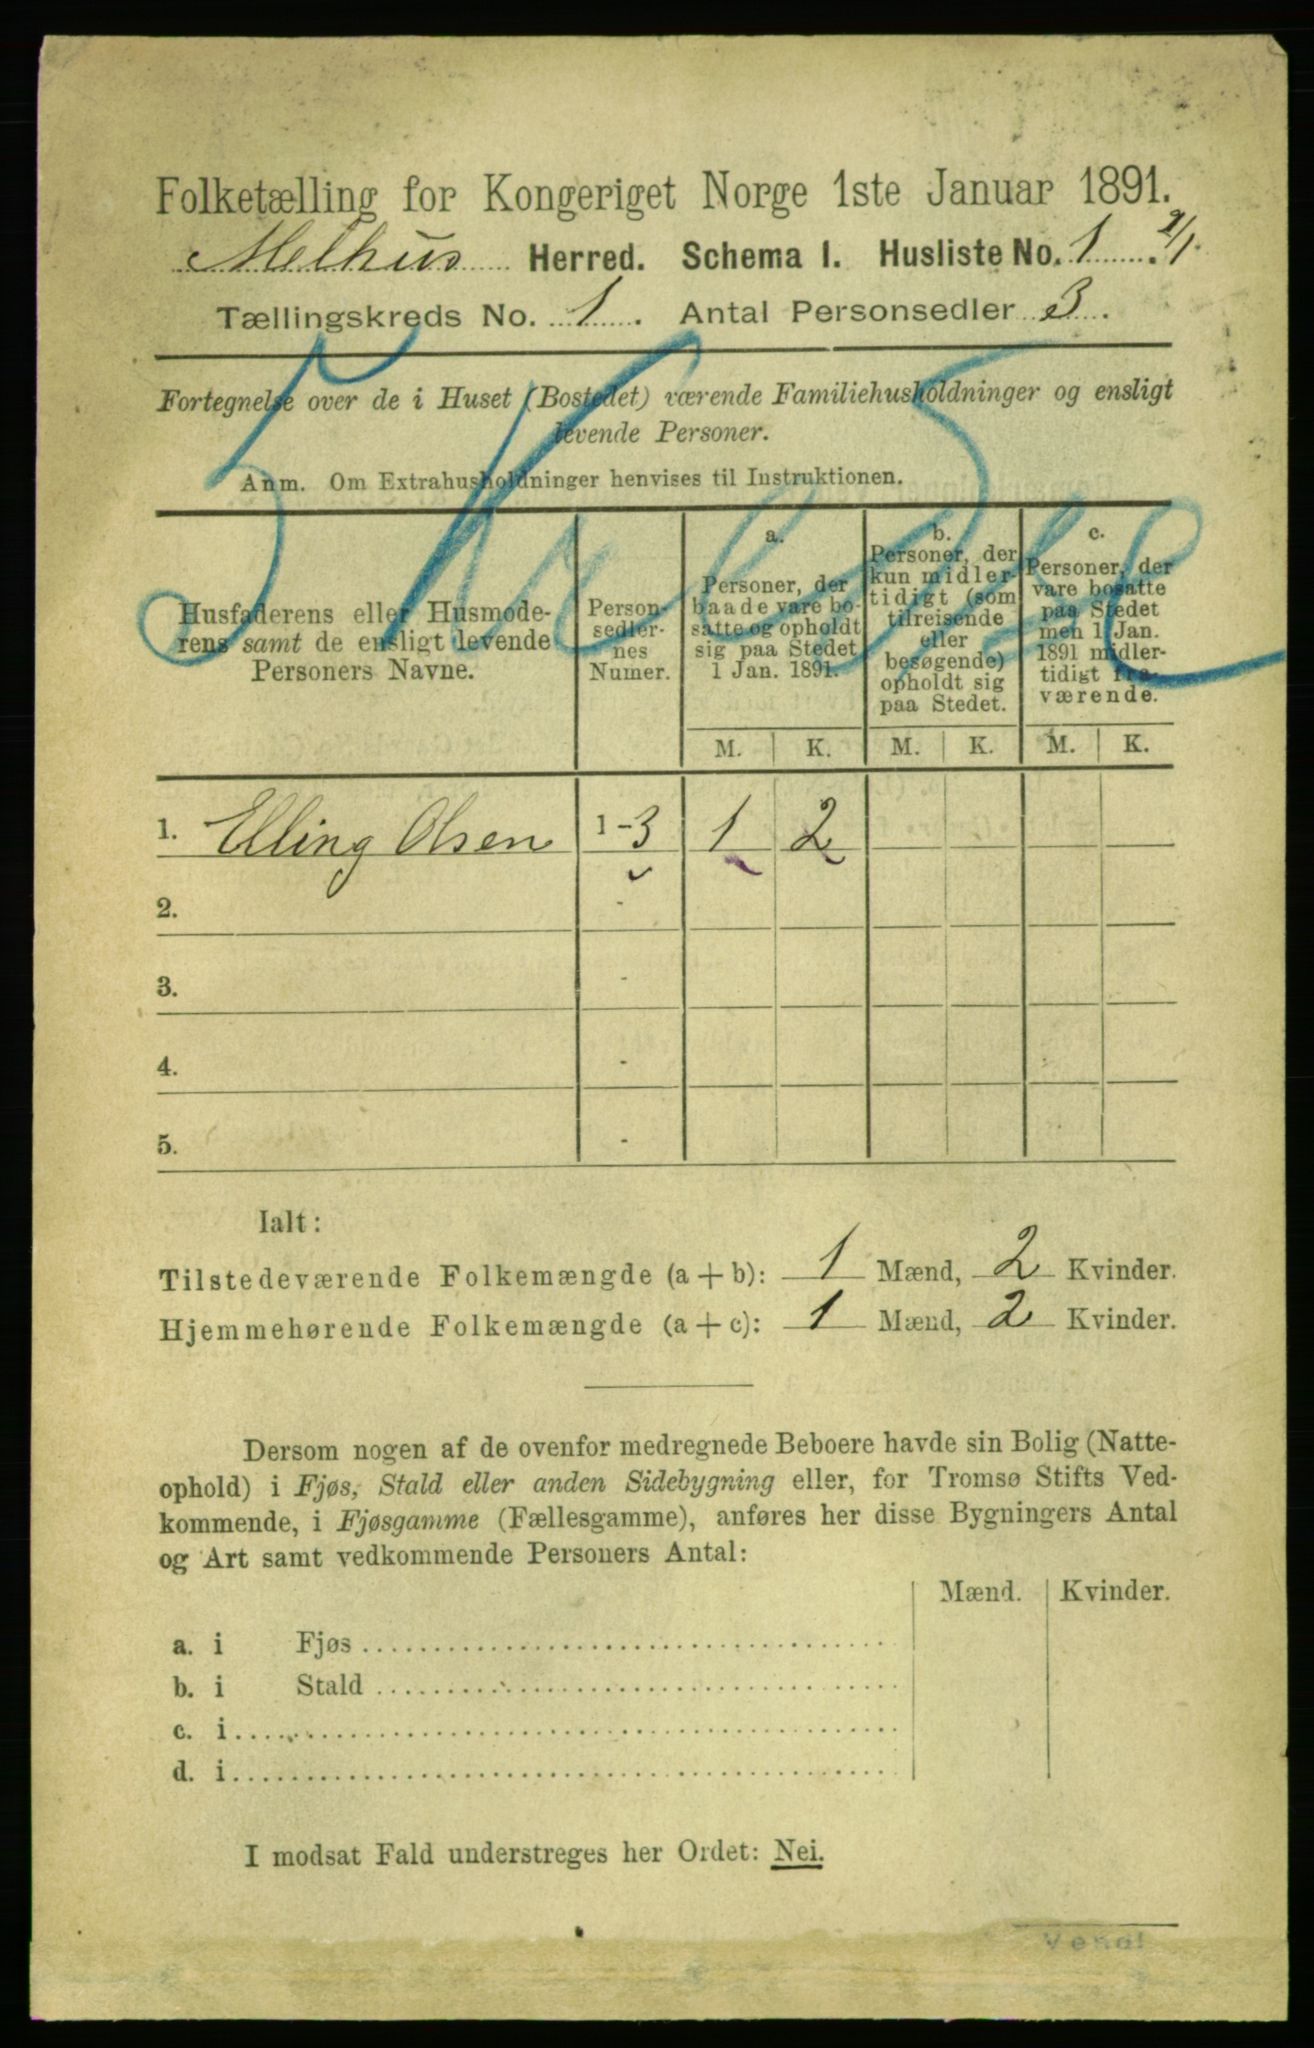 Folketælling for Kongeriget Norge 1ste Januar 1891.
Melhus Herred. Schema I. Husliste No. 1 2/1.
Tællingskreds No. 1. Antal Personsedler 3.
Fortegnelse over de i Huset (Bostedet) værende Familiehusholdninger og ensligt
levende Personer.
Anm. Om Extrahusholdninger henvises til Instruktionen.
Husfaderens eller Husmode-
rens samt de ensligt levende
Personers Navne.
Person-
sedler-
nes
Numer.
a.
Personer, der
baade vare bo-
satte og opholdt
sig paa Stedet
1 Jan. 1891.
M. K.
b.
Personer, der
kun midler-
tidigt (som
tilreisende
eller
besøgende)
opholdt sig
paa Stedet.
M. K.
c.
Personer, der
vare bosatte
paa Stedet
men 1 Jan.
1891 midler-
tidigt fra-
værende.
M. K.
1. Elling Olsen 1-3 1 2
2. -
3. -
4. -
5. -
Ialt:
Tilstedeværende Folkemængde (a + b): 1 Mænd, 2 Kvinder.
Hjemmehørende Folkemængde (a + c): 1 Mænd, 2 Kvinder.
Dersom nogen af de ovenfor medregnede Beboere havde sin Bolig (Natte-
ophold) i Fjøs, Stald eller anden Sidebygning eller, for Tromsø Stifts Ved-
kommende, i Fjøsgamme (Fællesgamme), anføres her disse Bygningers Antal
og Art samt vedkommende Personers Antal:
Mænd. Kvinder.
a. i Fjøs
b. i Stald
c. i
d. i
I modsat Fald understreges her Ordet: Nei.
Vend!